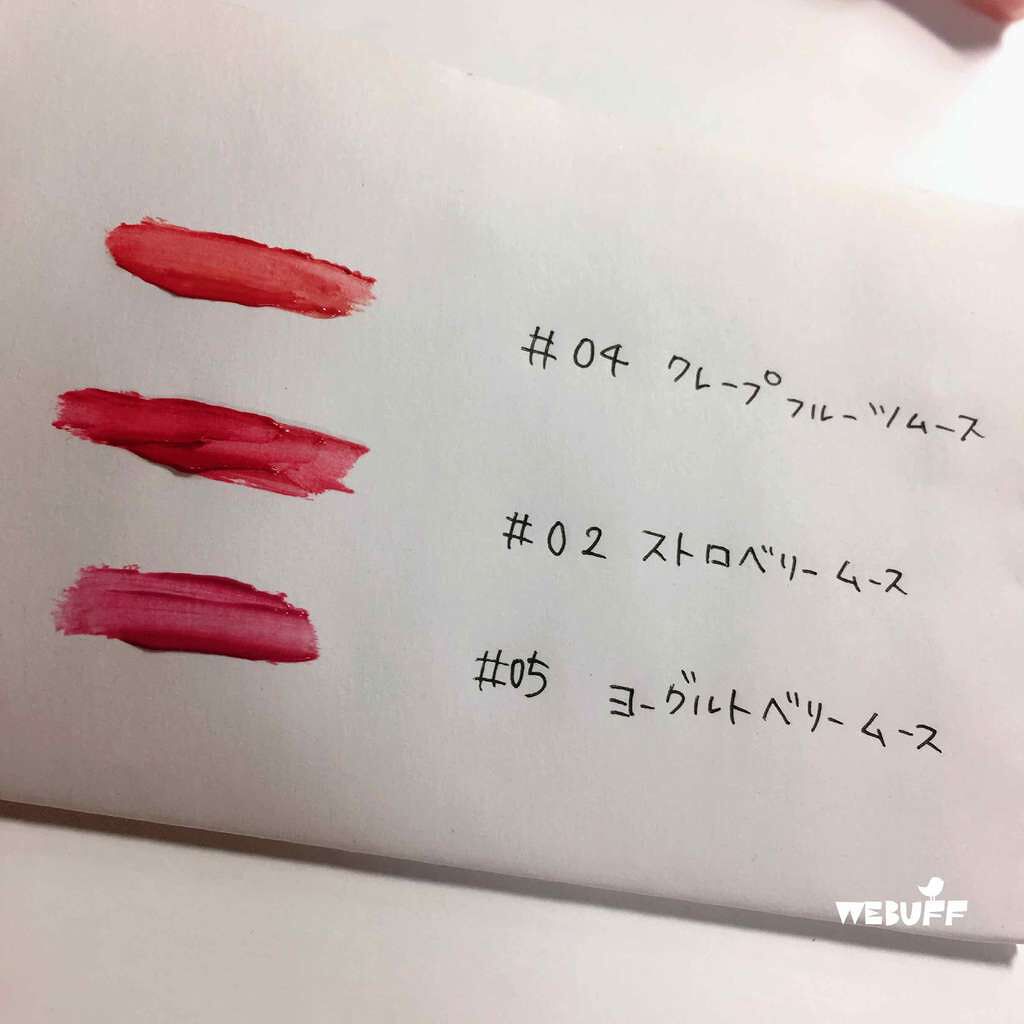 #04 クレープフルーツムース
#02 ストロベリームース
#05 ヨーグルトベリームース
WEBUFF